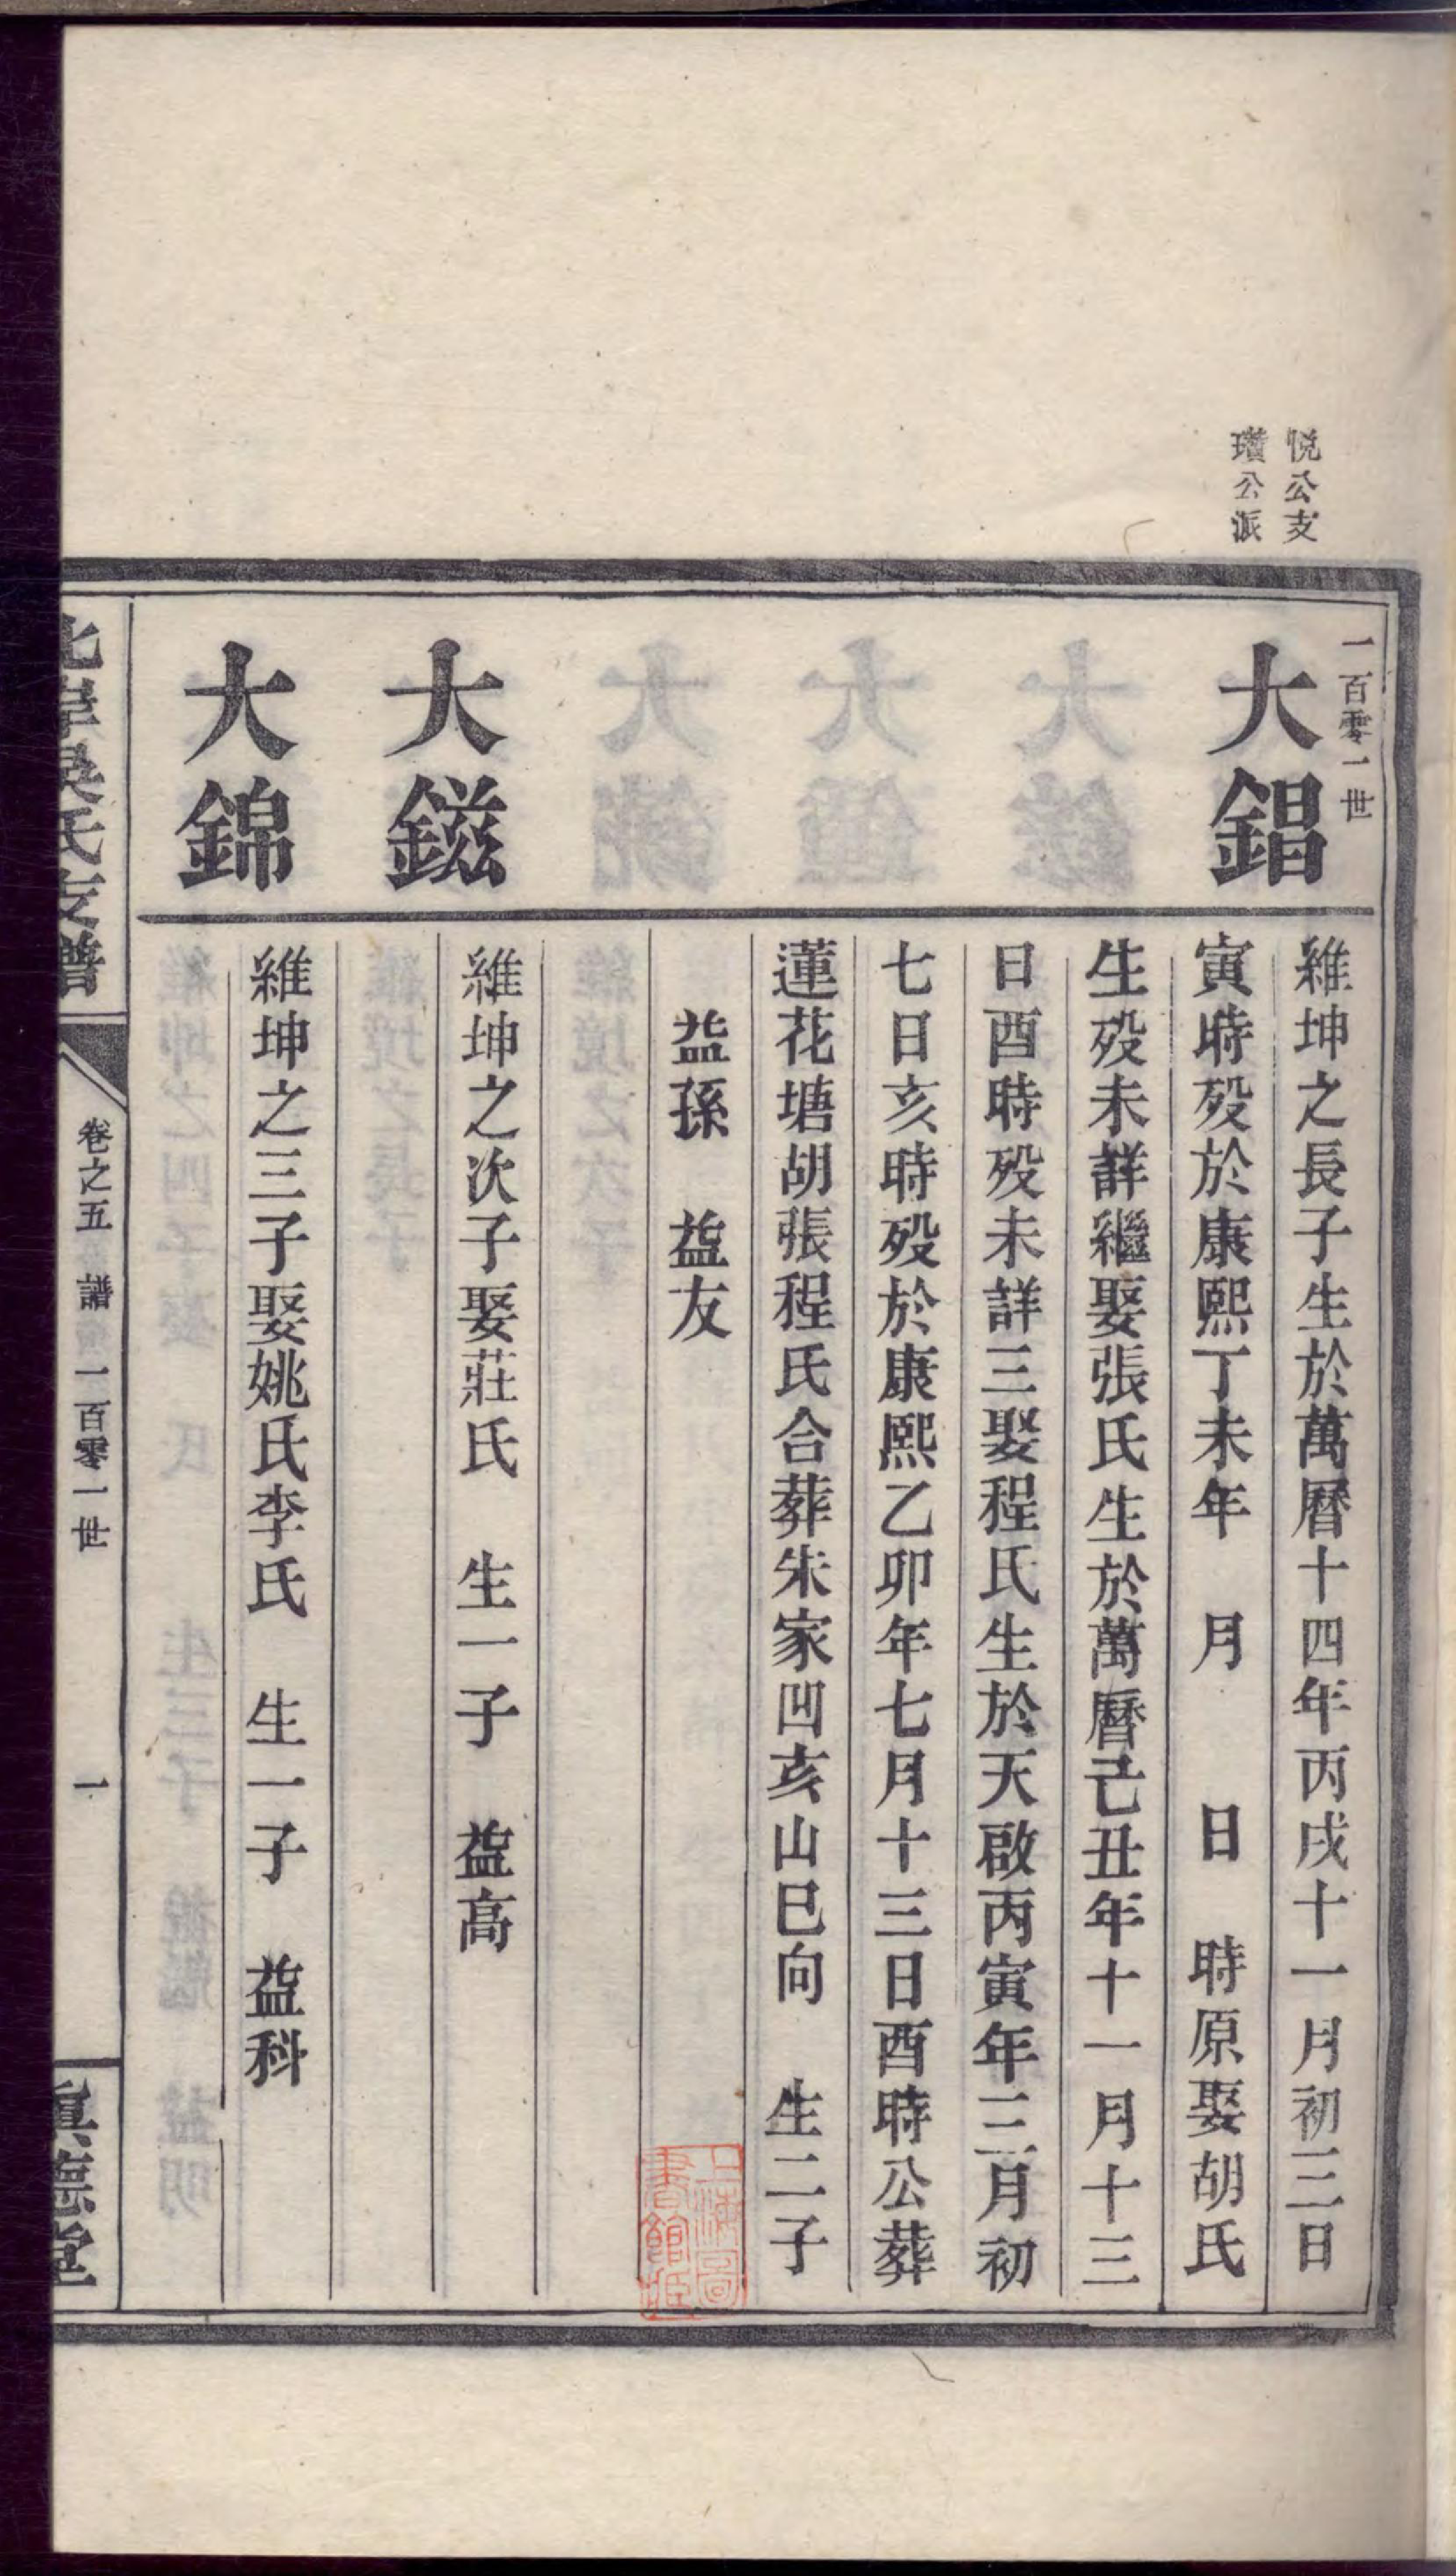 悅公支
瓚公派
一百零一世
大錩
維坤之長子生於萬曆十四年丙戌十一月初三日
寅時殁於康熙丁未年 月 日 時原娶胡氏
生殁未詳繼娶張氏生於萬曆己丑年十一月十三
日酉時殁未詳三娶程氏生於天啟丙寅年三月初
七日亥時殁於康熙乙卯年七月十三日酉時公葬
蓮花塘胡張程氏合葬朱家凹亥山巳向 生二子
益孫 益友
大鎡
維坤之次子娶莊氏 生一子 益高
大錦
維坤之三子娶姚氏李氏 生一子 益科
北岸吳氏支譜
卷之五 譜 一百零一世 一
眞德堂
上海圖
書館藏